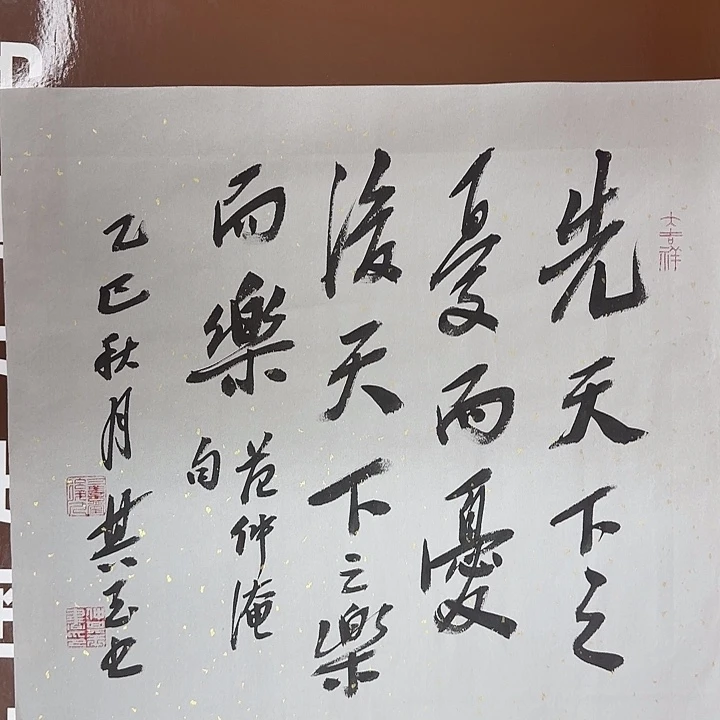 大吉祥
先天下之
憂而憂
後天下之樂
而樂
范仲淹
句
乙巳秋月
书